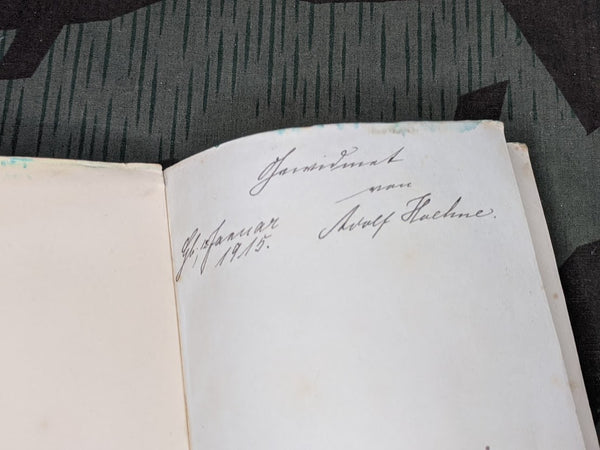 Gewidmet
von
Adolf Hoehne.
Januar
1915.